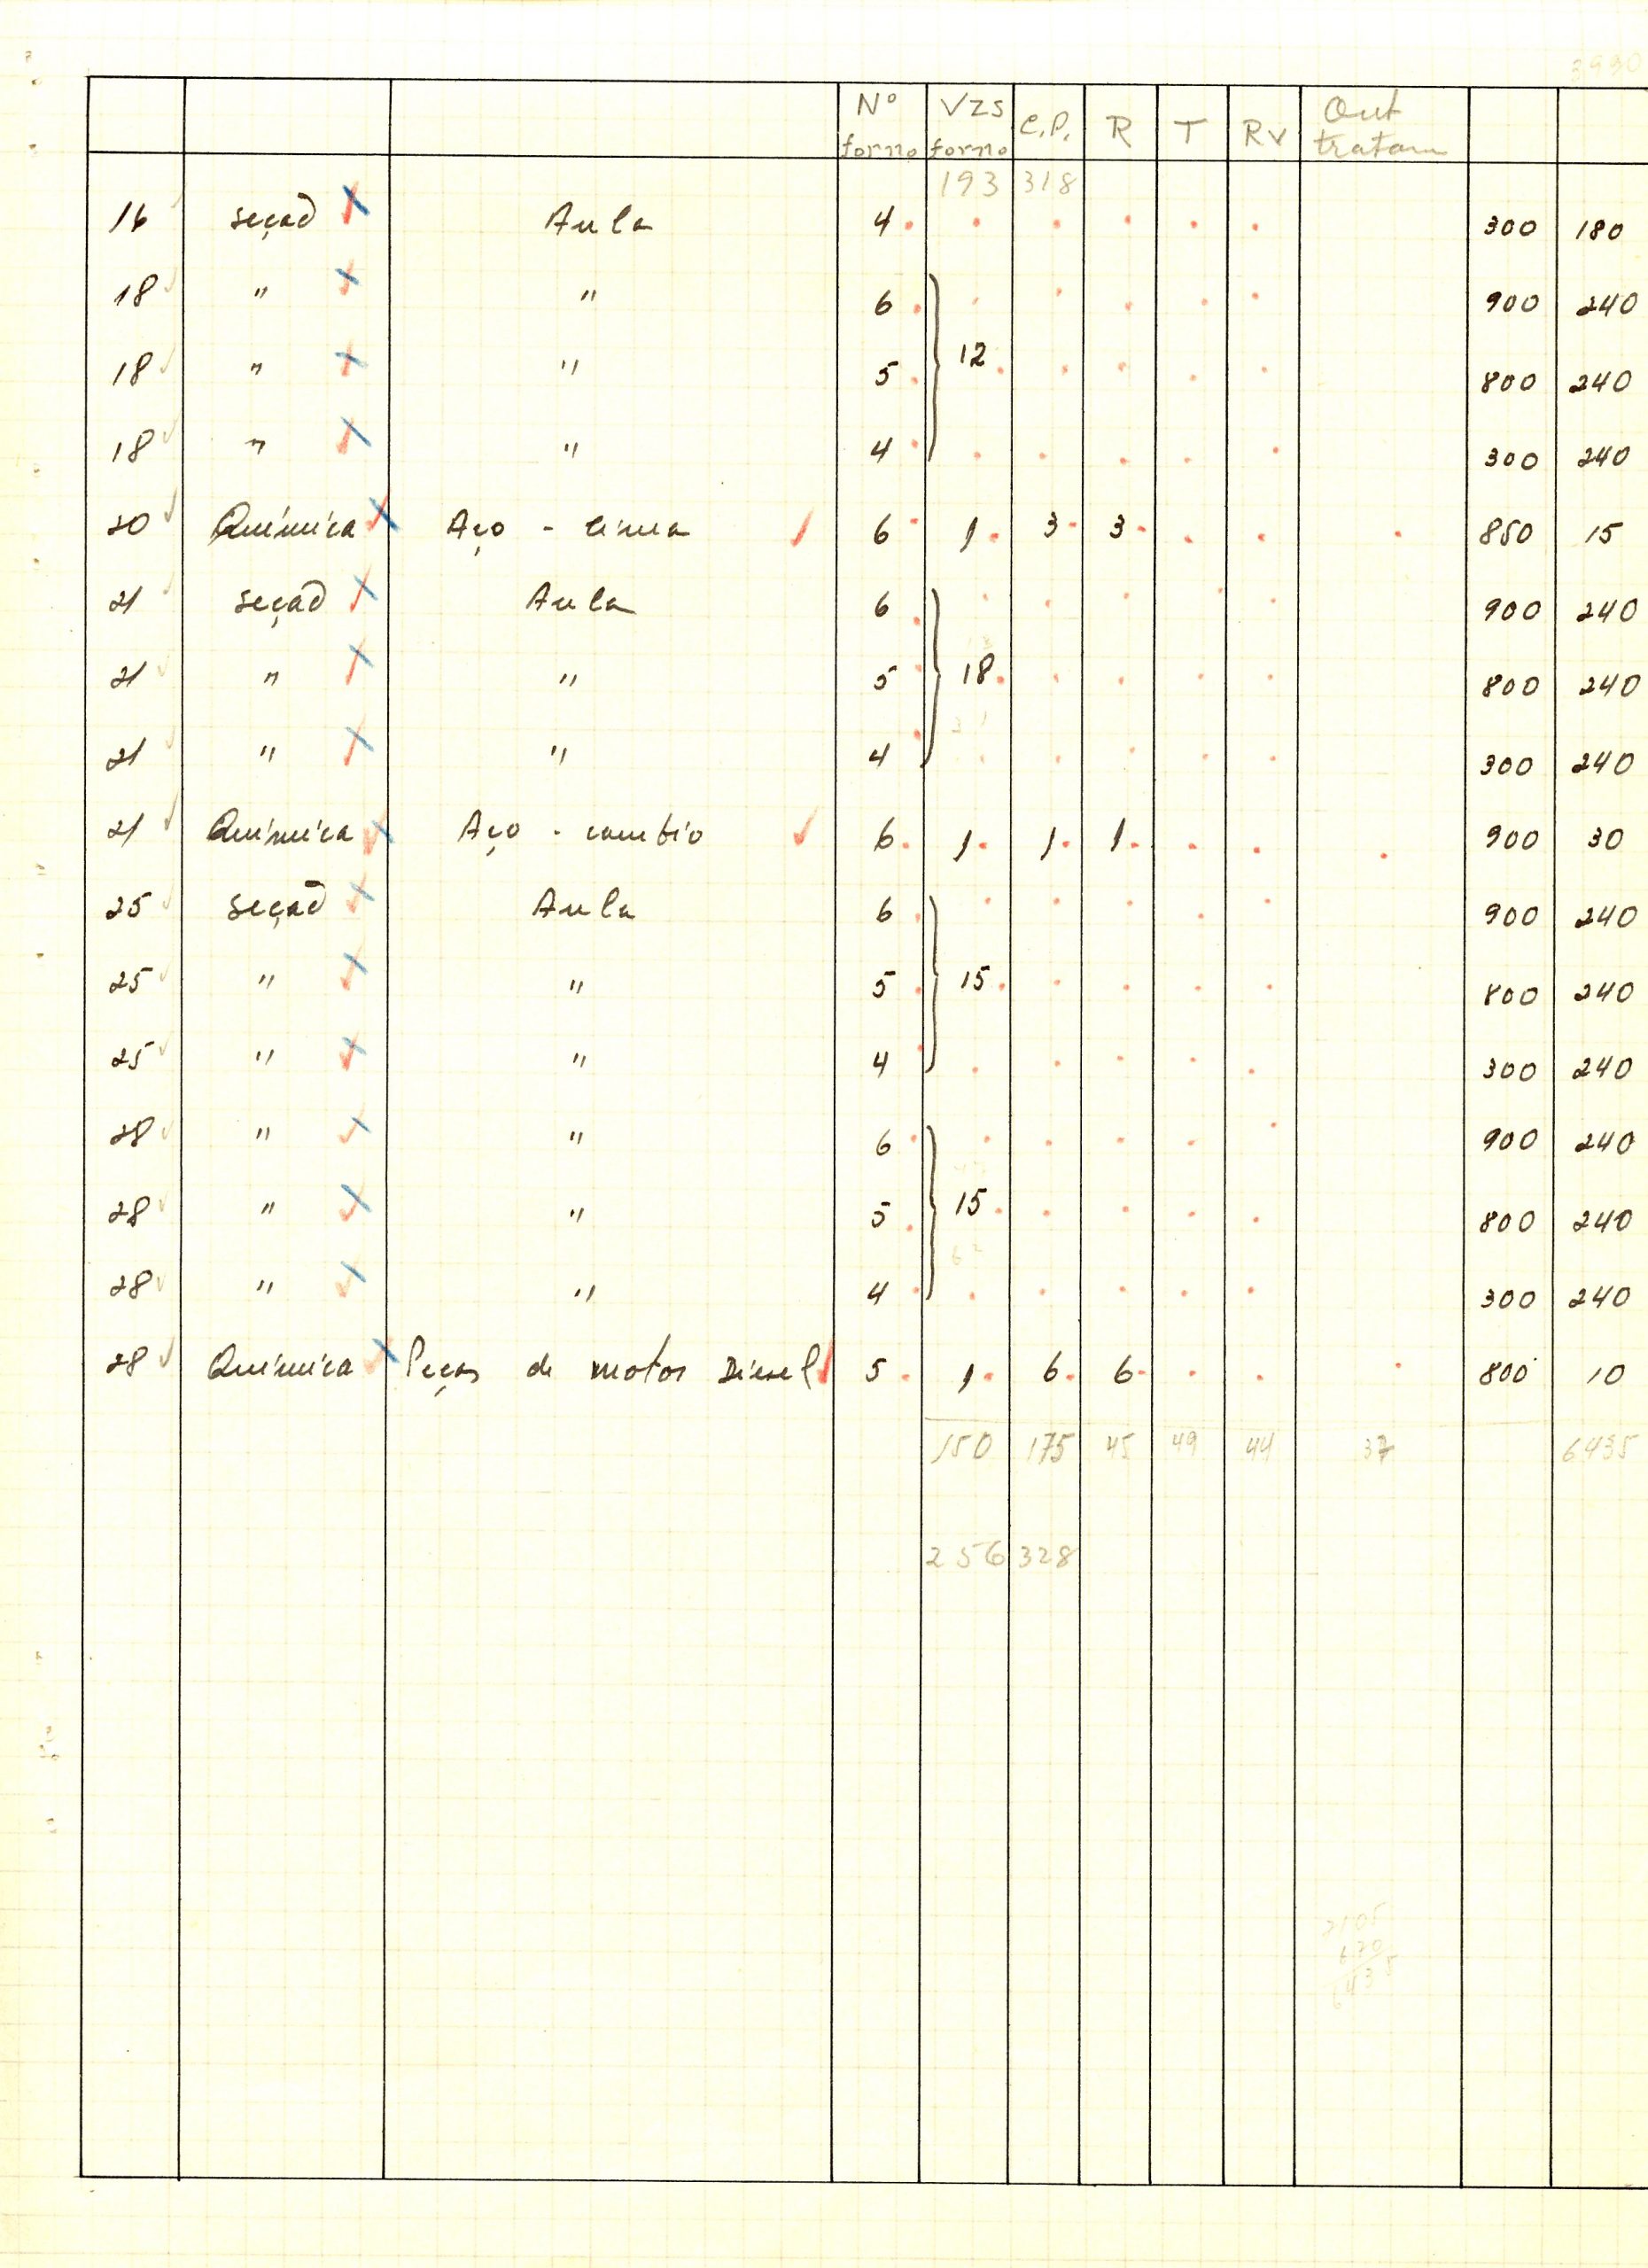 3990
Nº forno Vzs forno C.P. R T RV Out tratam
193 318
16 seção Aula 4 300 180
18 " " 6 900 240
18 " " 5 12 800 240
18 " " 4 300 240
20 Química Aço - 6 1 3 3 850 15
21 seção Aula 6 900 240
21 " " 5 18 800 240
21 " " 4 300 240
21 Química Aço - cambio 6 1 1 1 900 30
25 seção Aula 6 900 240
25 " " 5 15 800 240
25 " " 4 300 240
28 " " 6 900 240
28 " " 5 15 800 240
28 " " 4 300 240
28 Química Peças de motor Diesel 5 1 6 6 800 10
150 175 45 49 44 37 6435
256 328
670
6435